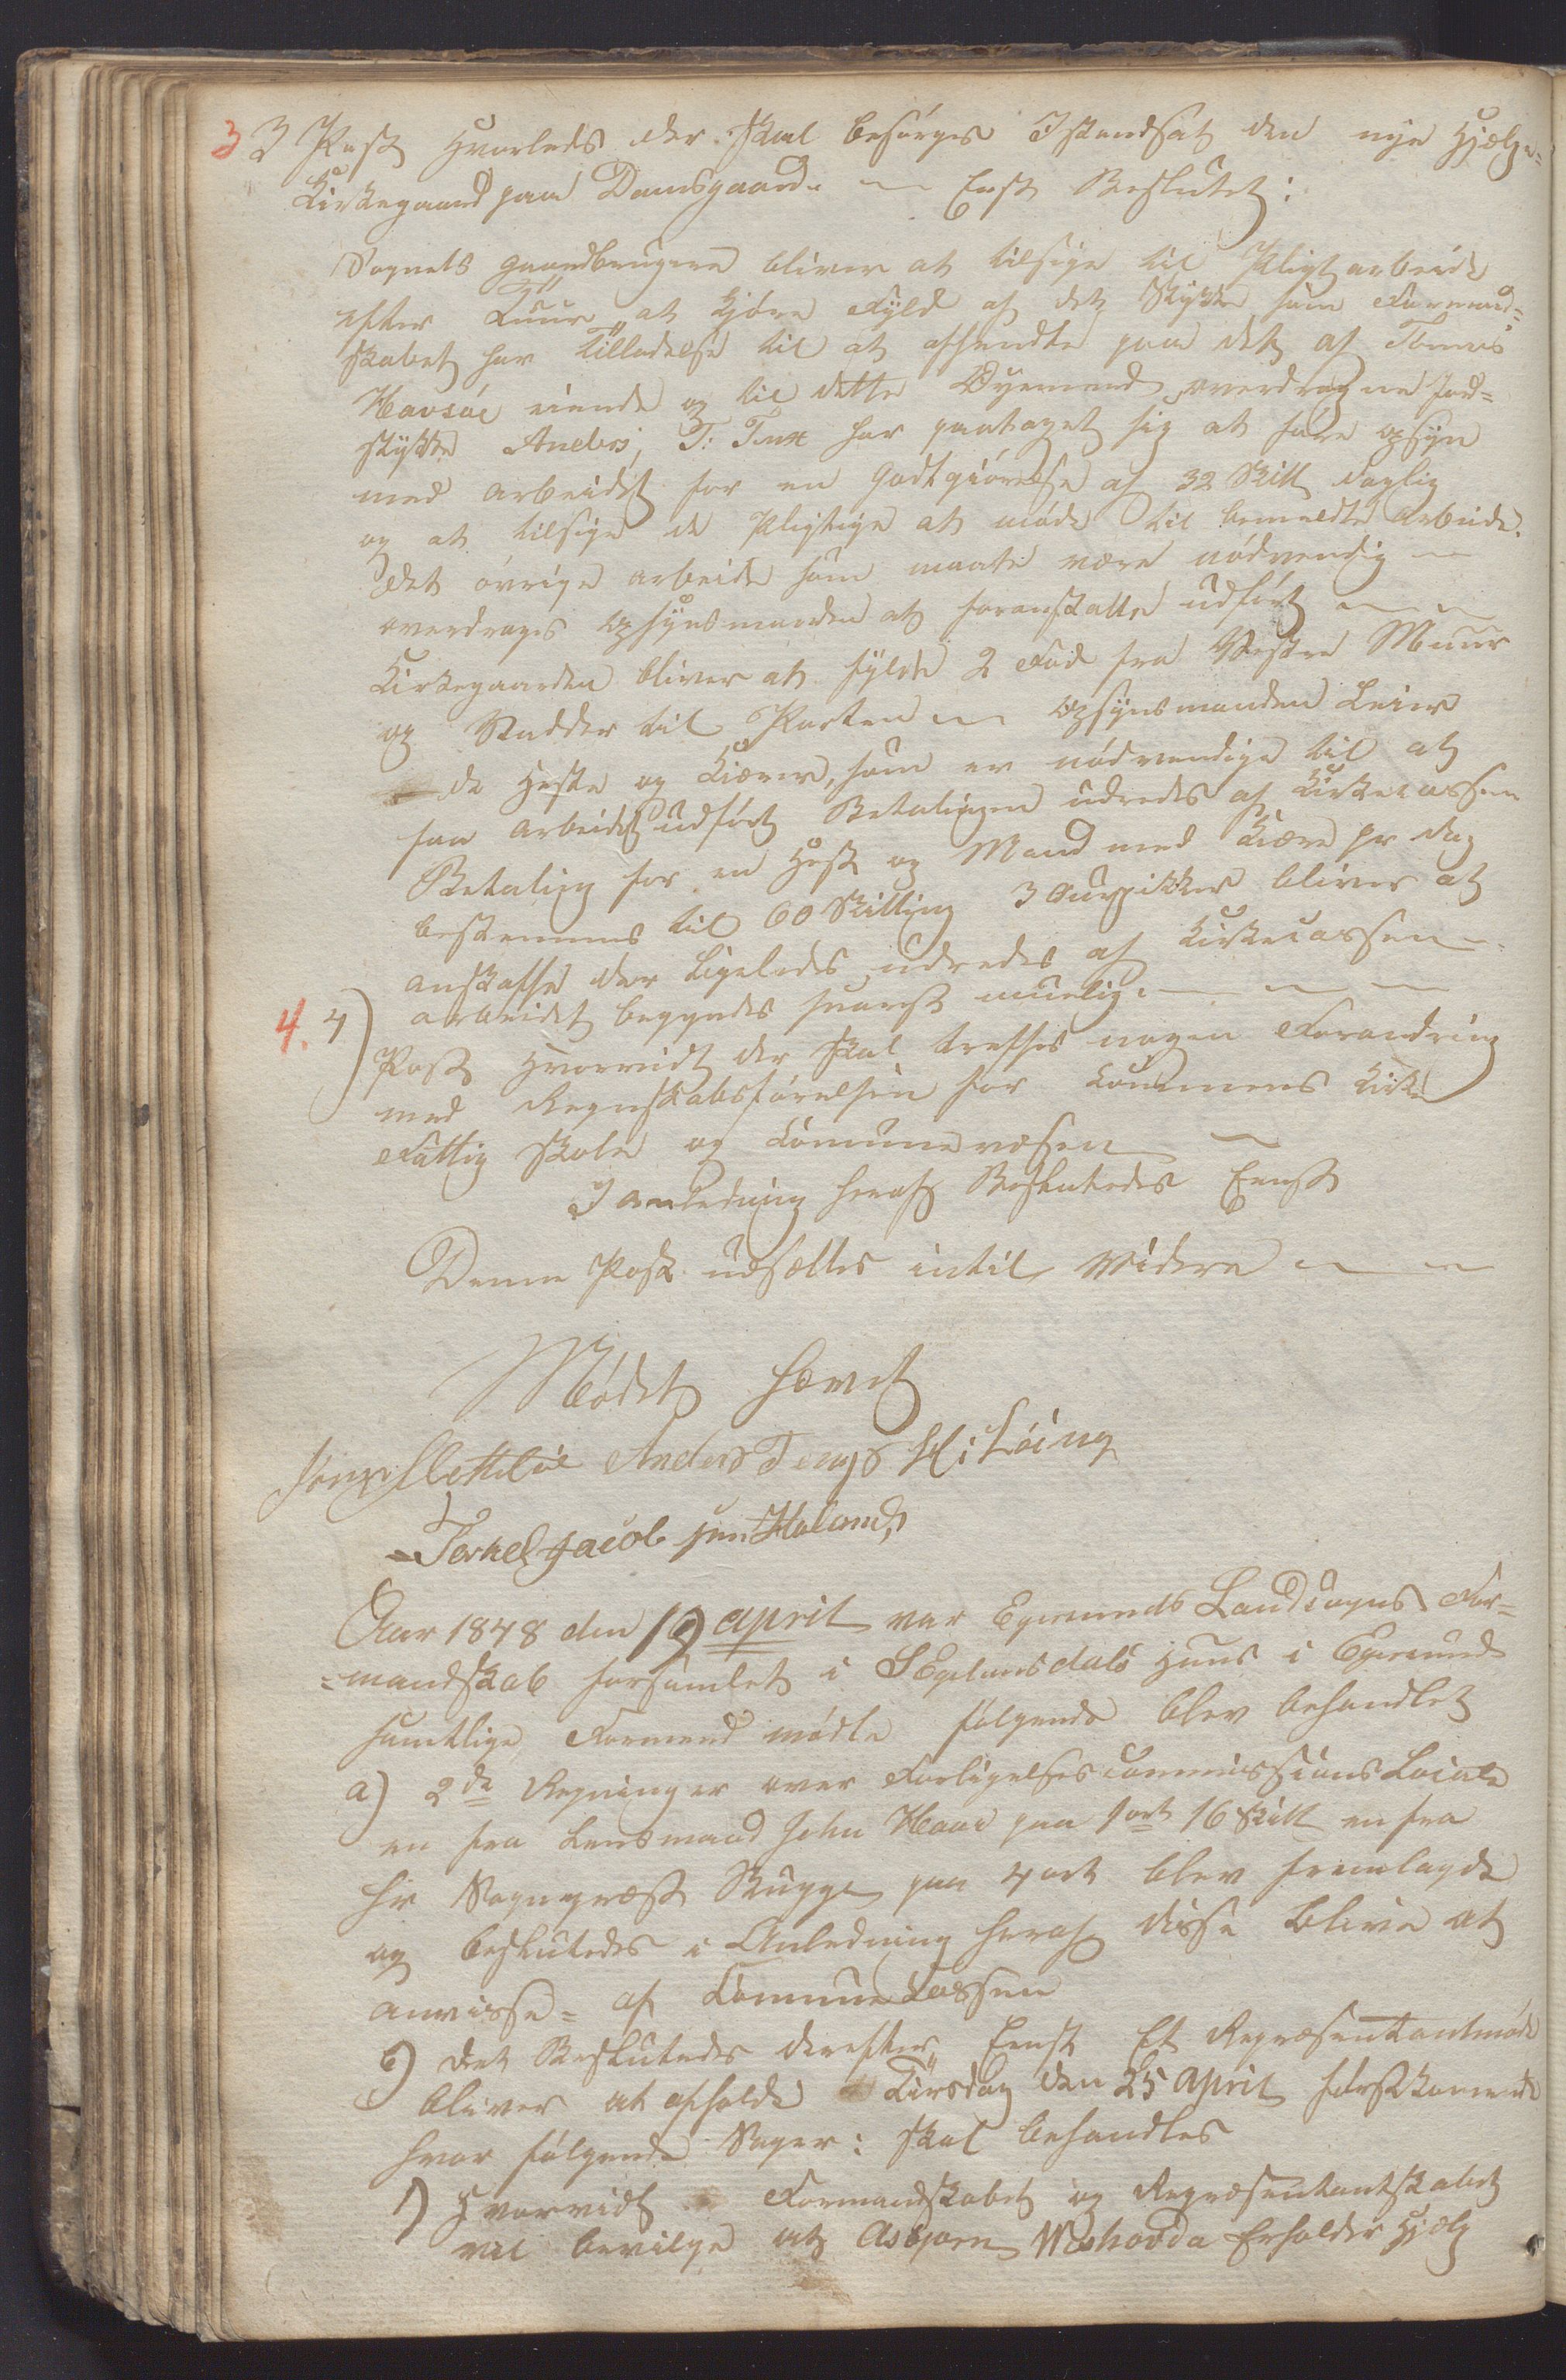 3 3 Post Hvorleds der skal besørges Istandsat den nye Hjelpe-
Kirkegaard paa Damsgaard. — Eenst Besluttet:
Sognets gaardbrugere bliver at tilsige til Pligtarbeide
efter Tuur at kjøre Fyld af det Stykke som Formand-
skabet har Tilladelse til at afhendte paa det af Tønnes
Havsøe eiende og til dette Øyemeed overdragne Jord-
stykke Anders T: Tengs har paataget sig at føre Opsyn
med arbeidet for en Godtgiørelse af 32 Skill daglig
og at tilsige de Pligtige at møde til bemeldte Arbeide.
Det øvrige arbeide som maate være nødvendig —
overdrages Opsynsmanden at foranstalte udført — —
Kirkegaarden bliver at fylde 2 Fod fra Vestre Muur
og Nedder til Porten — Opsynsmanden Leier
de Heste og Kiærer, som er nødvendige til at
faa Arbeidet udført Betalingen udredes af Kirkecassen
Betaling for en Hest og Mand med Kiære pr Dag
bestemmes til 60 Skilling 3 bliver at
anskaffe der ligeledes udredes af Kirkecassen —
arbeidet begyndes snarest muelig. — — —
4. 4) Post Hvorvidt der skal treffes nogen Forandring
med Regnskabsførelsen for Communens Kirke
Fattig Skole og Communevæsen —
I anledning heraf Besluttedes Eenst
Denne Post udsættes intil Videre — —
Mødet hævet
Anders Tengs
Torkel Jacob sen Haland,
Aar 1848 den 19 april var Egersunds Landsogns For-
=mandskab forsamlet i Huus i Egersund
samtlige Formænd mødte følgende blev behandlet
a) 2de Regninger over Forligelsescommissions Locale
en fra Lensmand John Haae paa 1 ort 16 Skill en fra
Hr Sognepræst paa 4 ort blev fremlagde
og besluttedes i Anledning heraf disse blive at
anvisse = af CommuneCassen
b) Det Besluttedes derefter Eenst Et Repræsentantmøde
bliver at afholde Tirsdag den 25 April førstkomende
hvor følgende Sager: skal behandles
1) Hvorvidt Formandskabet og Repræsentantskabet
vil bevilge at Asbjørn Erholder Hjelp